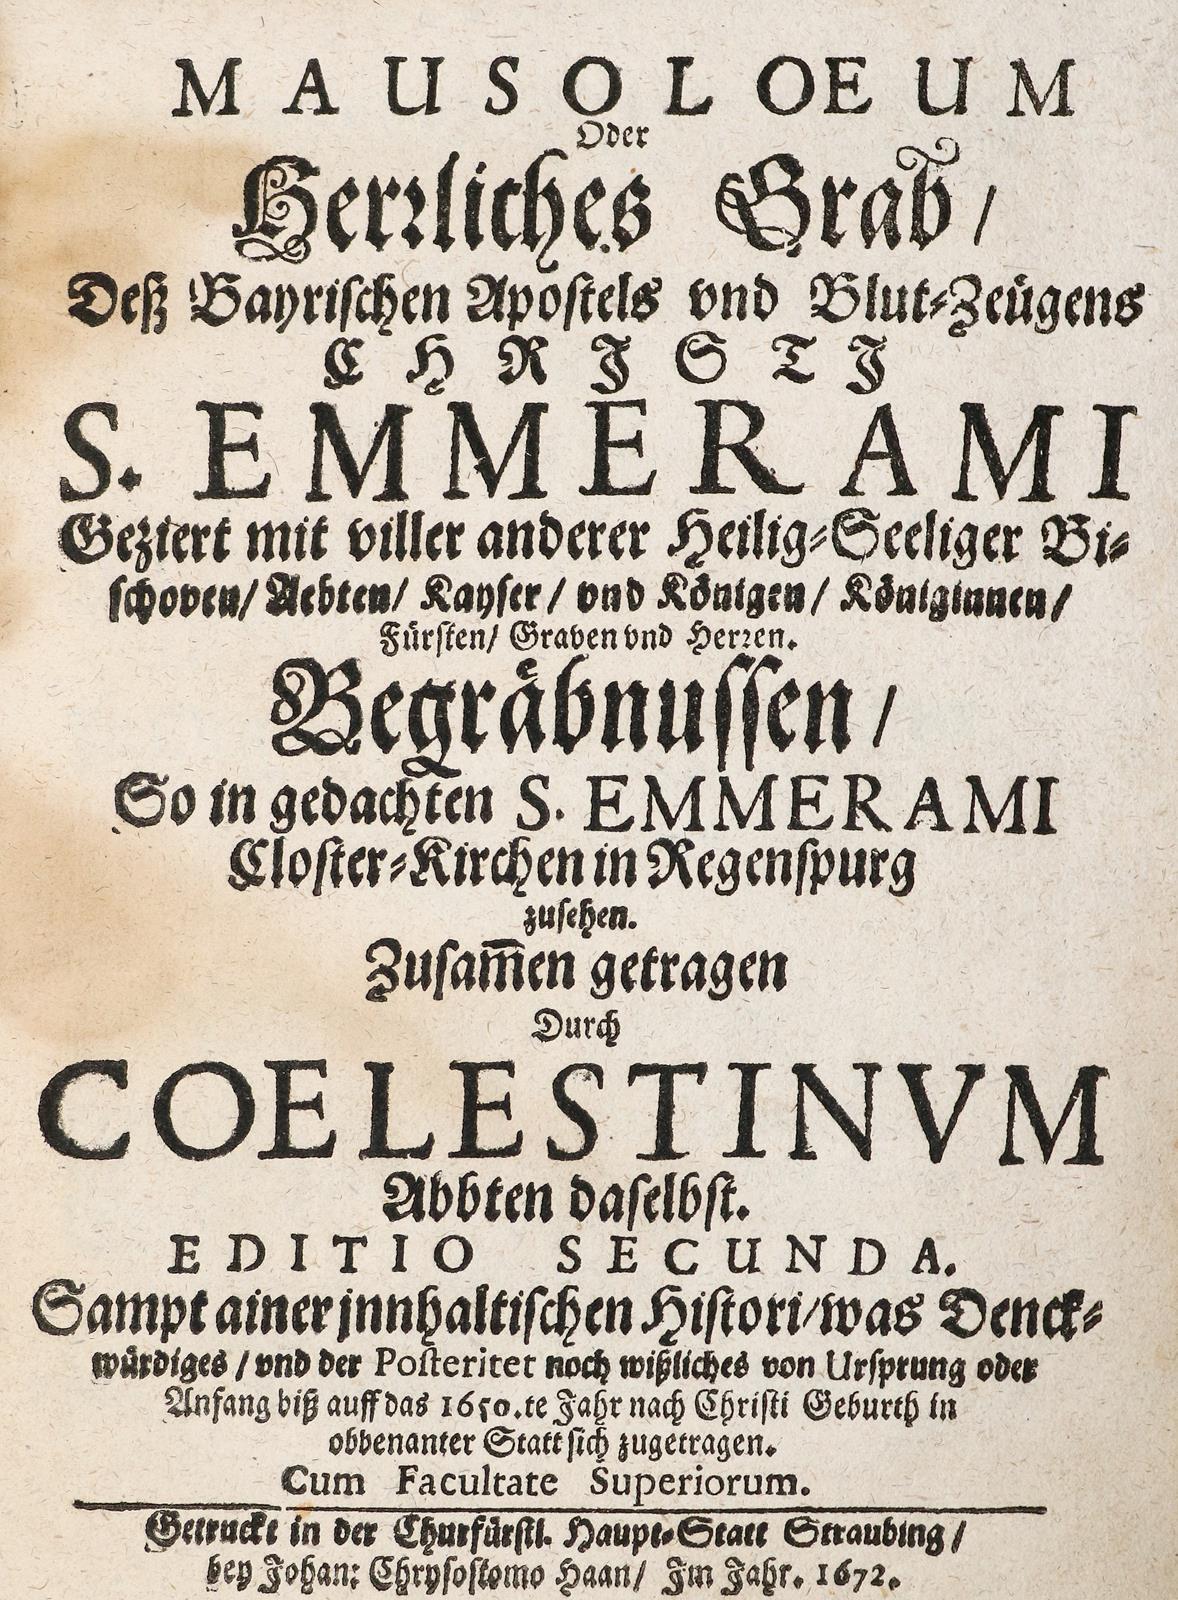 MAUSOLOEUM
Oder
Herꝛliches Grab/
Deß Bayrischen Apostels vnd Blut-Zeügens
CHRISTI
S. EMMERAMI
Geziert mit viller anderer Heilig-Seeliger Bi-
schoven/ Aebten/ Kayser/ vnd Königen/ Königinnen/
Fürsten/ Graven vnd Herꝛen.
Begräbnussen/
So in gedachten S. EMMERAMI
Closter-Kirchen in Regenspurg
zusehen.
Zusam̅en getragen
Durch
COELESTINVM
Abbten daselbst.
EDITIO SECUNDA.
Sampt ainer jnnhaltischen Histori/was Denck-
würdiges/vnd der Posteritet noch wißliches von Ursprung oder
Anfang biß auff das 1650.te Jahr nach Christi Geburth in
obbenanter Statt sich zugetragen.
Cum Facultate Superiorum.
Getruckt in der Churfürstl. Haupt-Statt Straubing/
bey Johan: Chrysostomo Haan/ Im Jahr. 1672.